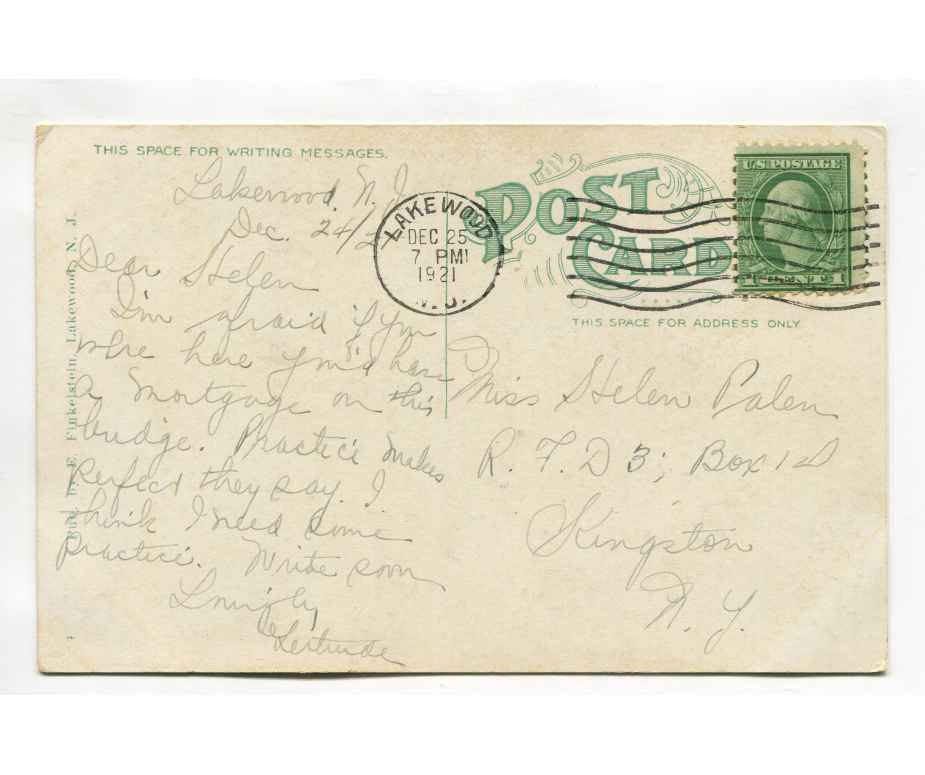 THIS SPACE FOR WRITING MESSAGES.
POST CARD
U.S. POSTAGE
LAKEWOOD
DEC 25
7 PM
1921
N.J.
THIS SPACE FOR ADDRESS ONLY
Pub. by E. Finkelstein, Lakewood, N. J.
Lakewood, N. J.
Dec. 24/21
Dear Helen
I'm afraid if you
were here you'd have
a mortgage on this
bridge. Practice makes
perfect they say. I
think I need some
practice. Write soon
Lovingly
Gertrude
Miss Helen Palen
R. F. D 3; Box
Kingston
N. Y.